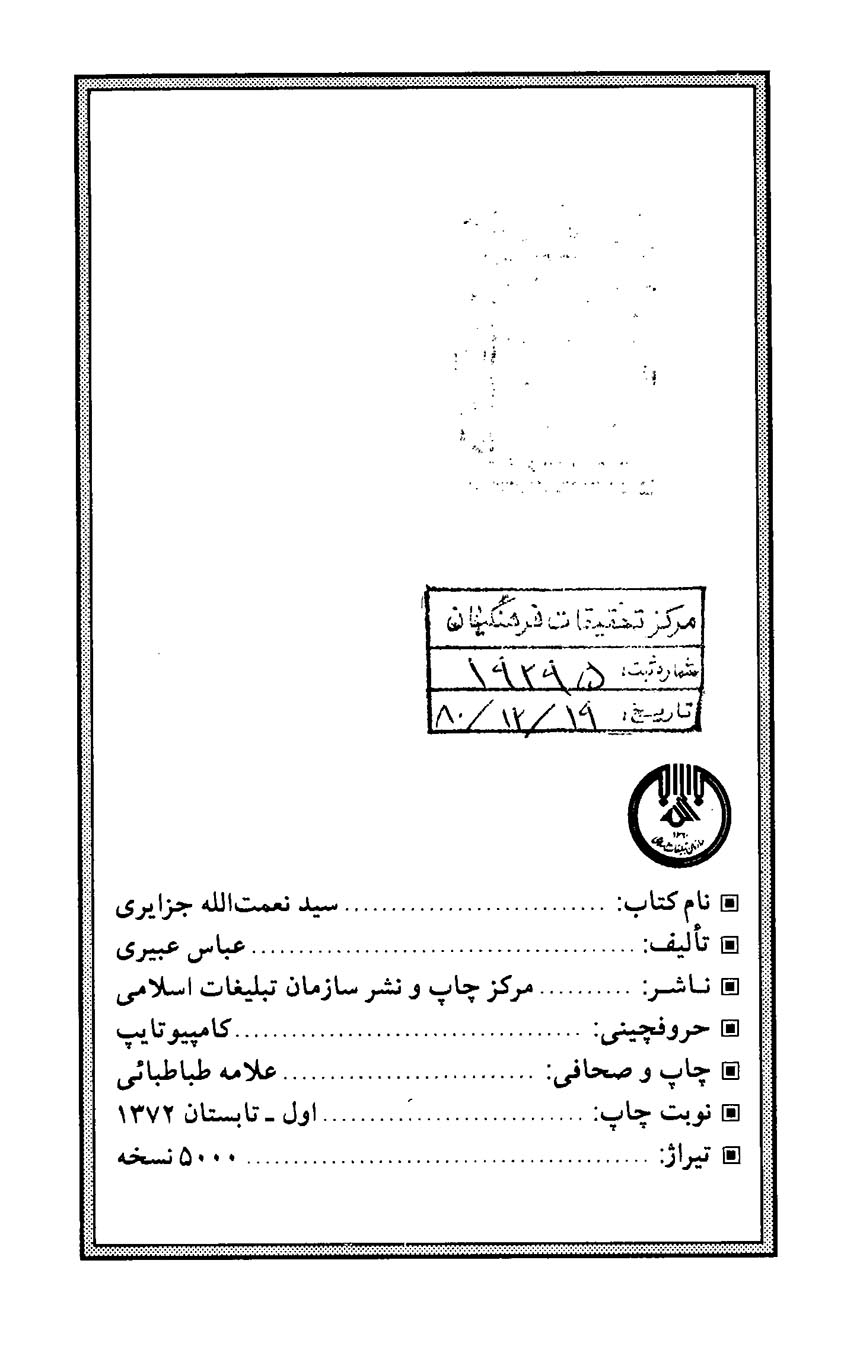 مرکز تحقیقات فرهنگیان
شماره ثبت:
تاریخ: ۸۰/۱۲/۱۹
۱۳۶۰
سازمان تبلیغات اسلامی
نام کتاب: ............................ سید نعمت‌الله جزایری
تألیف: ........................................ عباس عبیری
ناشر: .......... مرکز چاپ و نشر سازمان تبلیغات اسلامی
حروفچینی: ..................................... کامپیوتایپ
چاپ و صحافی: ........................... علامه طباطبائی
نوبت چاپ: ............................ اول ـ تابستان ۱۳۷۲
تیراژ: ........................................... ۵۰۰۰ نسخه